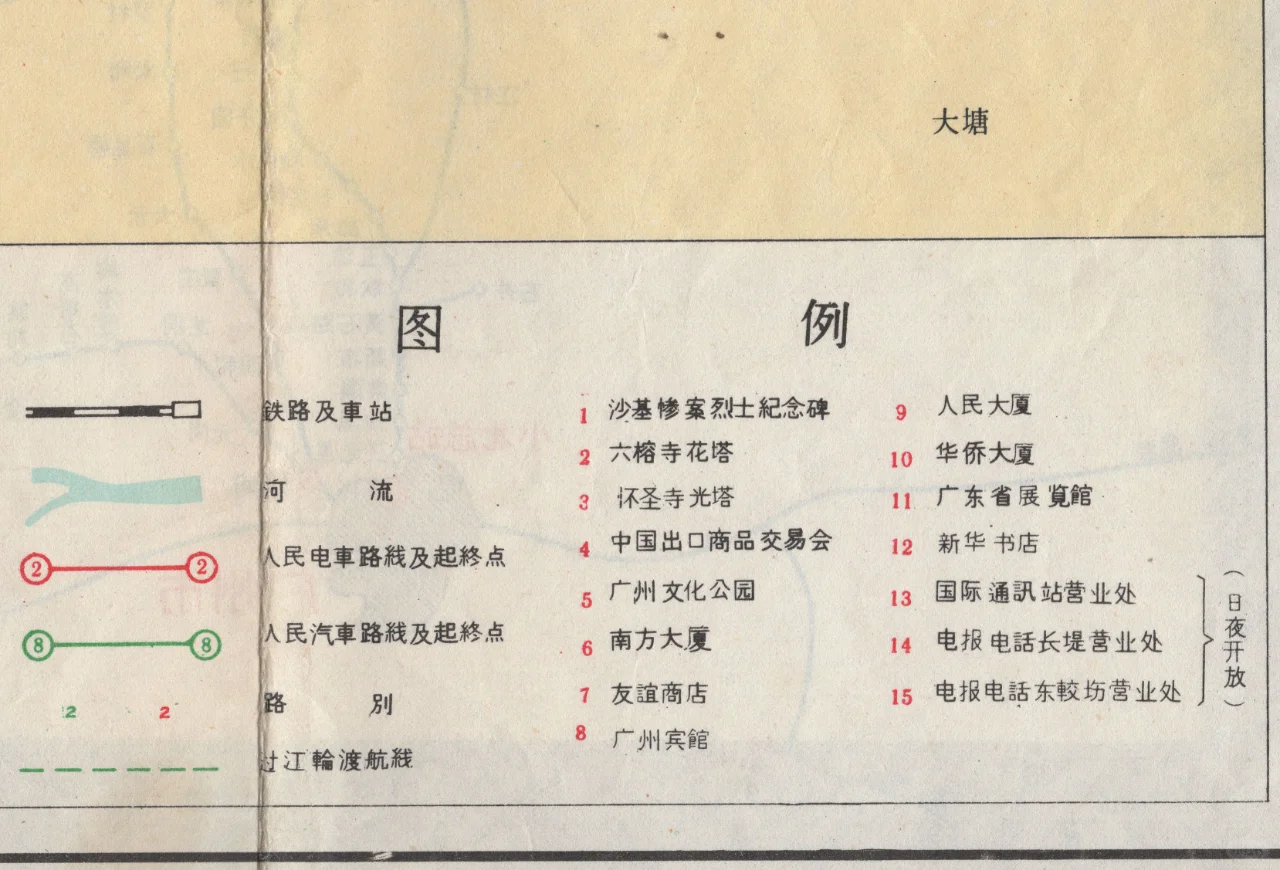 大塘
图 例
鉄路及車站
河 流
2 2 人民电車路綫及起終点
8 8 人民汽車路綫及起終点
12 2 路 別
过江輪渡航綫
1 沙基惨案烈士紀念碑
2 六榕寺花塔
3 怀圣寺光塔
4 中国出口商品交易会
5 广州文化公园
6 南方大厦
7 友誼商店
8 广州宾館
9 人民大厦
10 华侨大厦
11 广东省展覧館
12 新华书店
13 国际通訊站营业处
14 电报电話长堤营业处
15 电报电話东較場营业处
(日夜开放)